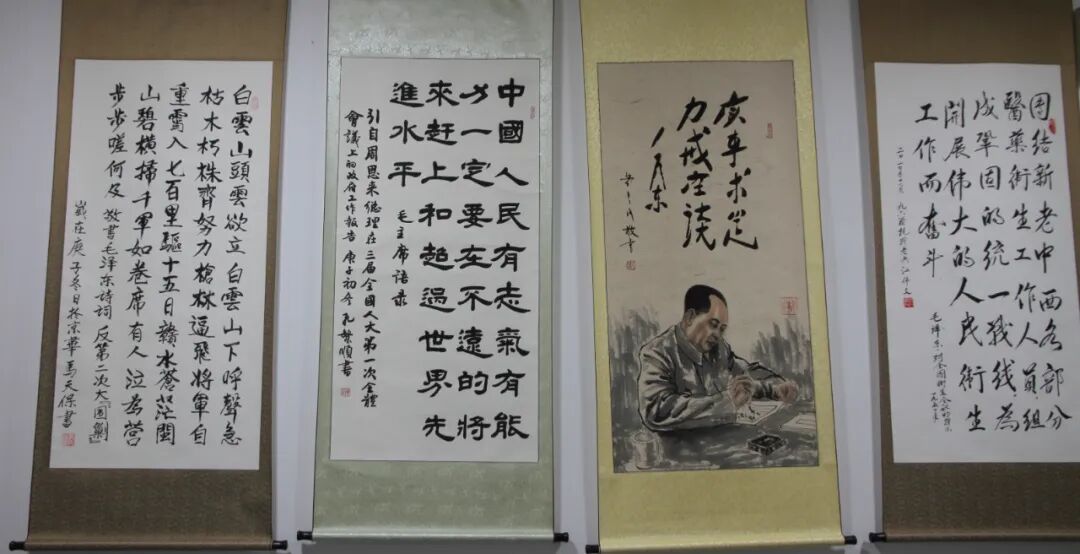 白雲山頭雲欲立白雲山下呼聲急
枯木朽株齊努力槍林逼飛將軍自
重霄入七百里驅十五日贛水蒼茫閩
山碧橫掃千軍如卷席有人泣為營
步步嗟何及 敬書毛泽东詩詞反第二次大『圍剿』
歲在庚子冬日於京華馬天保書
中國人民有志氣有能
力一定要在不遠的將
來赶上和超過世界先
進水平 毛主席語录
引自周恩来總理在三届全國人大第一次全體
會議上的政府工作報告 庚子初冬孔繁順書
实事求是
力戒空談
毛泽东
团结新老中西各部分
醫藥衛生工作人員組
成鞏固的統一战线為
開展伟大的人民衛生
工作而奮斗